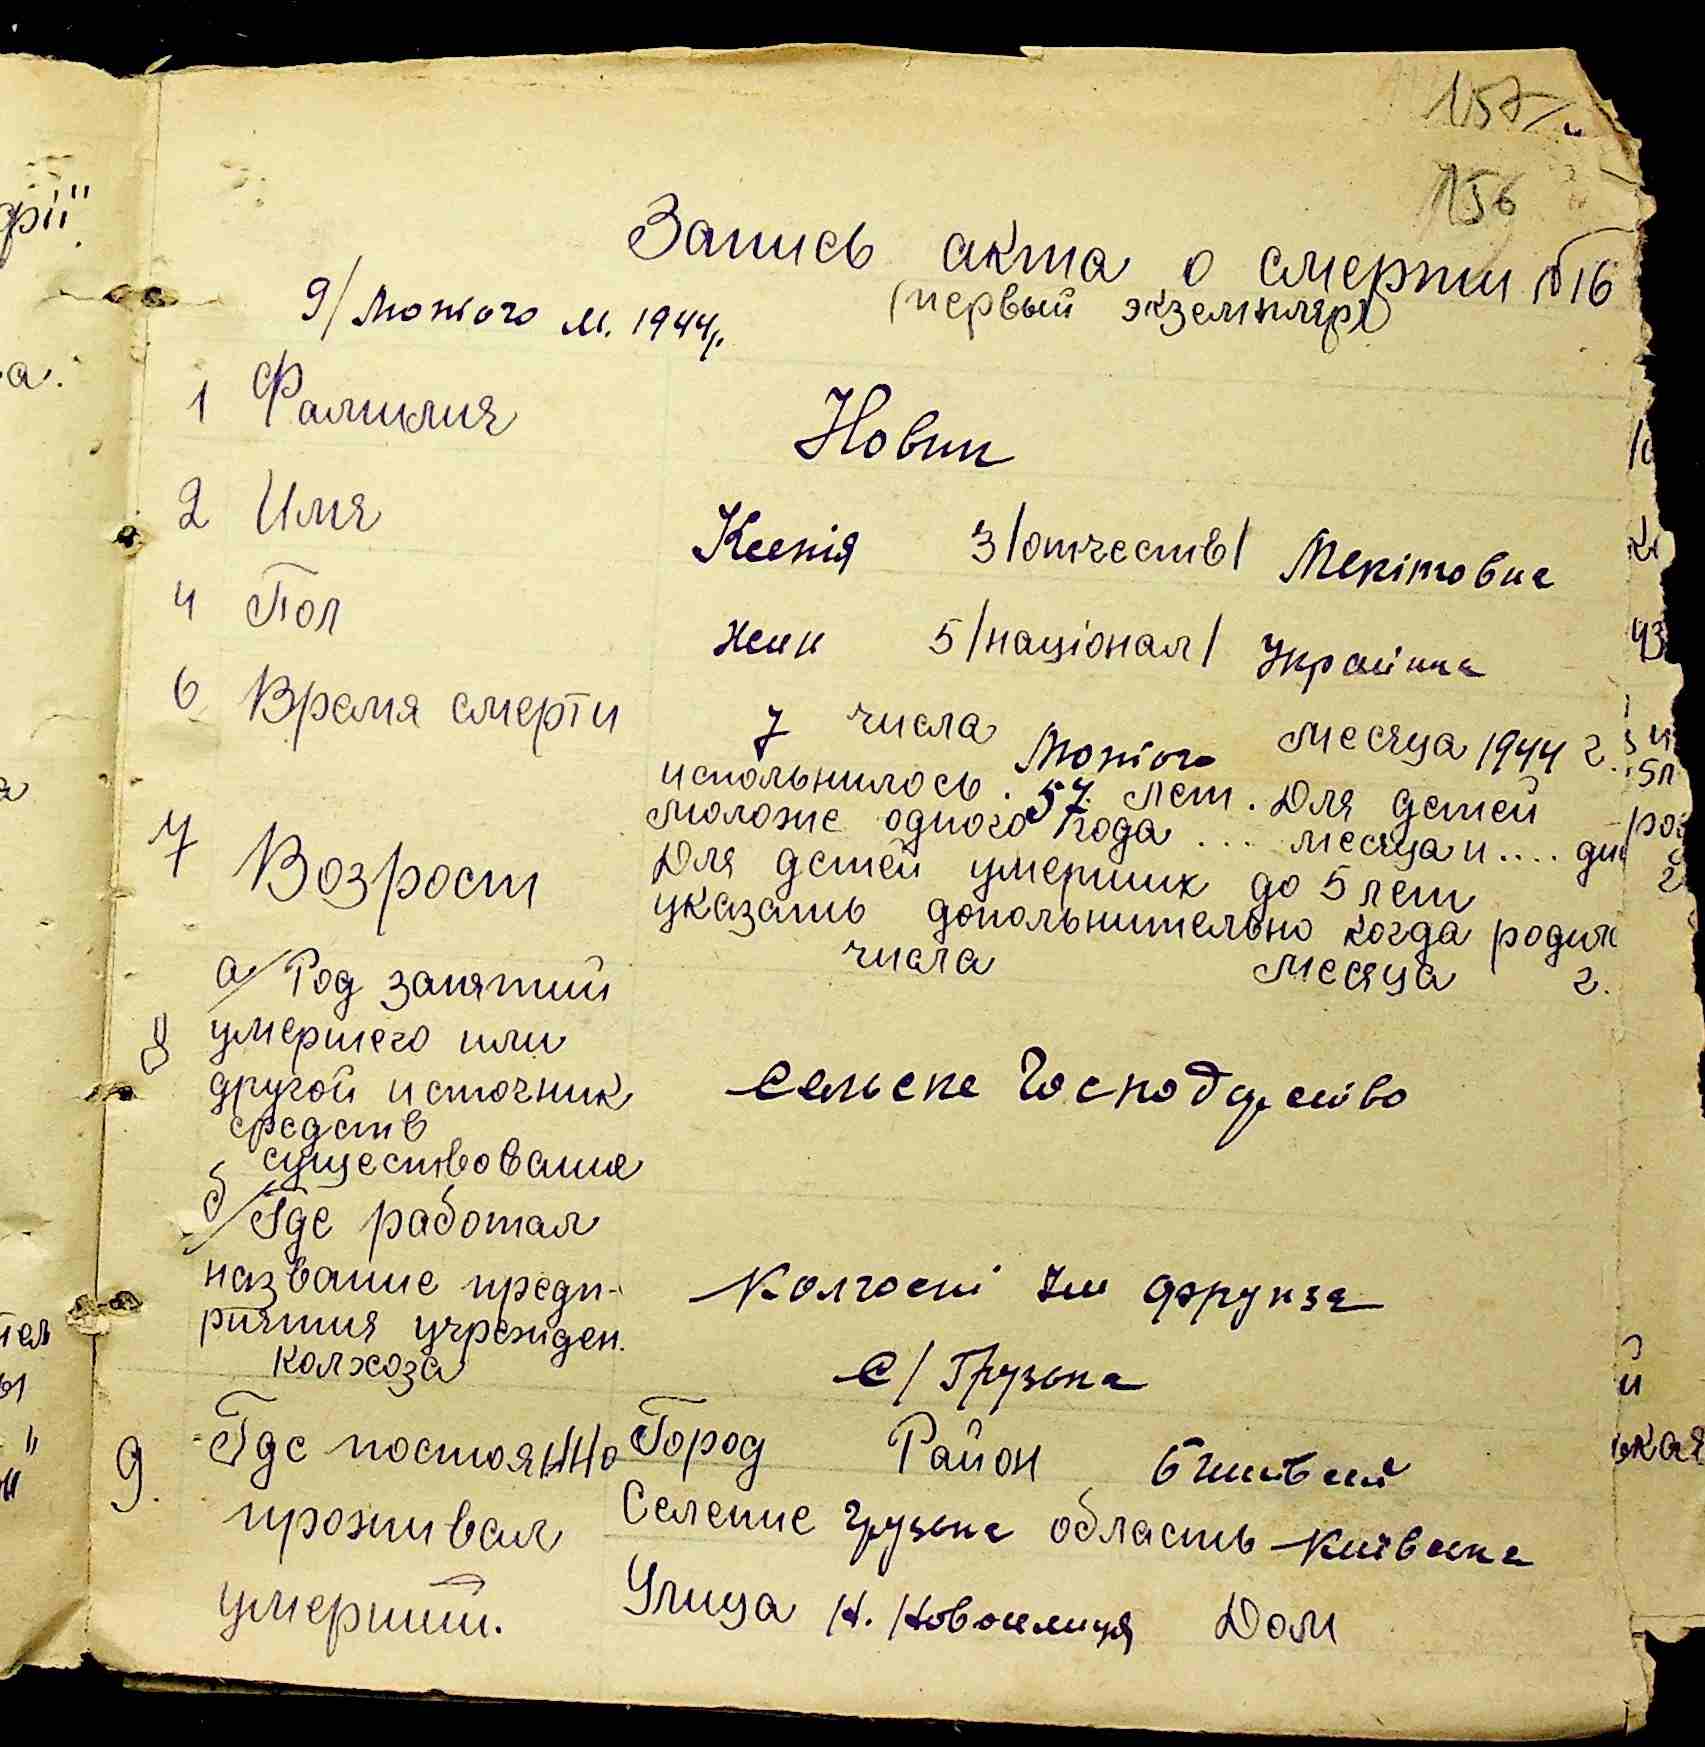 157
156
Запись акта о смерти №16
(первый экземпляр)
9/ Лютого м. 1944р.
1 Фамилия Новик
2 Имя Ксенія 3/отчеств/ Мекітовна
4 Пол жин 5/націонал/ Українка
6 Время смерти 7 числа Лютого месяца 1944 г.
7 Возрост испольнилось 57 лет. Для детей
моложе одного года ... месяца и .... дн
Для детей умерших до 5 лет
указать допольнительно когда родил
числа месяца г.
8 а/ Род занятий
умершего или
другой источник
средств
существования
сельске господарство
б/ Где работал
название предп-
риятия учрежден.
колхоза
Колгоспі Ім Фрунзе
с/ Грузька
9. Где постоянно
проживал
умерший.
Город Район
Селение Грузька область Київська
Улица Н. Новоселиця Дом